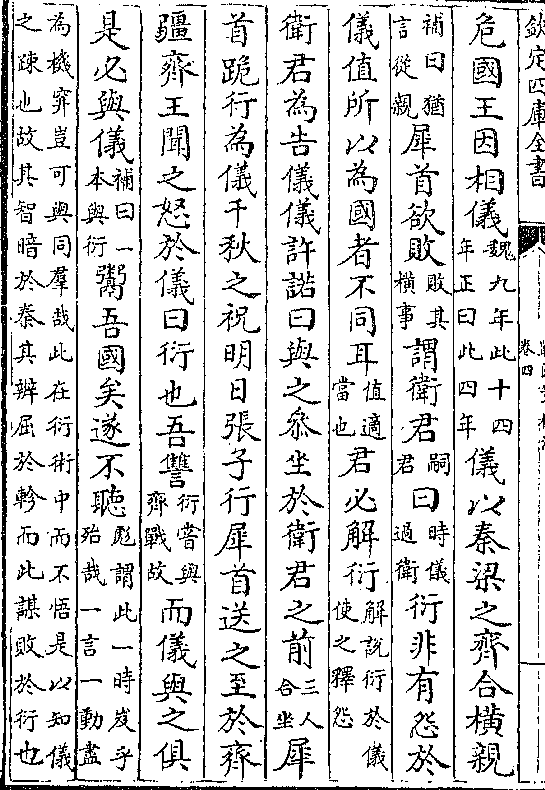 欽定四庫全書
卷四
危國王因相儀魏九年此十四年正曰此四年儀以秦梁之齊合橫親
補曰猶言從親犀首欲敗敗其橫事謂衛君嗣君曰時儀過衛衍非有怨於
儀值所以為國者不同耳值適當也君必解衍解說衍於儀使之釋怨
衛君為告儀儀許諾曰與之叅坐於衛君之前三人合坐犀
首跪行為儀千秋之祝明日張子行犀首送之至於齊
疆齊王聞之怒於儀曰衍也吾讐衍嘗與齊戰故而儀與之俱
是必與儀補曰一本與衍鬻吾國矣遂不聽彪謂此一時岌乎殆哉一言一動盡
為機穽豈可與同羣哉此在衍術中而不悟是以知儀
之疎也故其智暗於秦其辨屈於軫而此謀敗於衍也